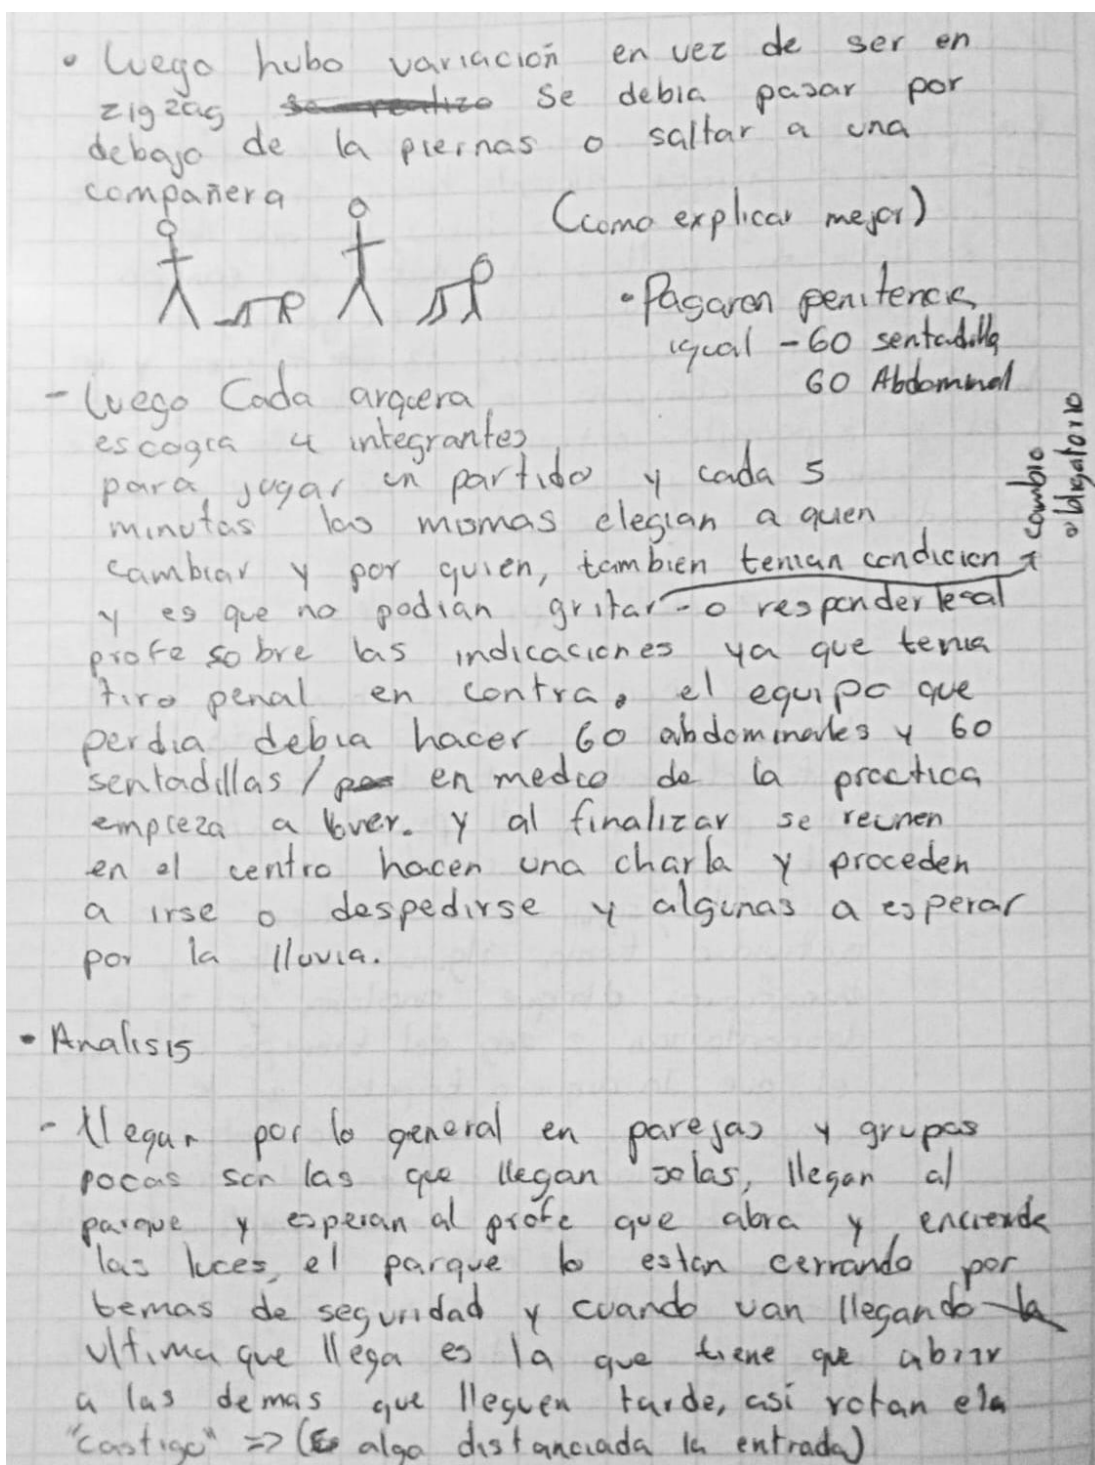 • Luego hubo variación en vez de ser en
zigzag se realizo se debia pasar por
debajo de la piernas o saltar a una
compañera
(como explicar mejor)
• Pagaron penitencia
igual - 60 sentadilla
60 Abdominal
- Luego Cada arquera
escogia 4 integrantes
para jugar un partido y cada 5
minutos las mismas elegian a quien
cambiar y por quien, tambien tenian condicion
cambio
obligatorio
y es que no podian gritar - o responderle al
profe sobre las indicaciones ya que tenia
tiro penal en contra. el equipo que
perdia debia hacer 60 abdominales y 60
sentadillas / en medio de la practica
empieza a llover. y al finalizar se reunen
en el centro hacen una charla y proceden
a irse o despedirse y algunas a esperar
por la lluvia.
• Analisis
- llegan por lo general en parejas y grupos
pocas son las que llegan solas, llegan al
parque y esperan al profe que abra y encienda
las luces, el parque lo estan cerrando por
temas de seguridad y cuando van llegando la
ultima que llega es la que tiene que abrir
a las demas que lleguen tarde, asi rotan el
"castigo" => ( algo distanciada la entrada)